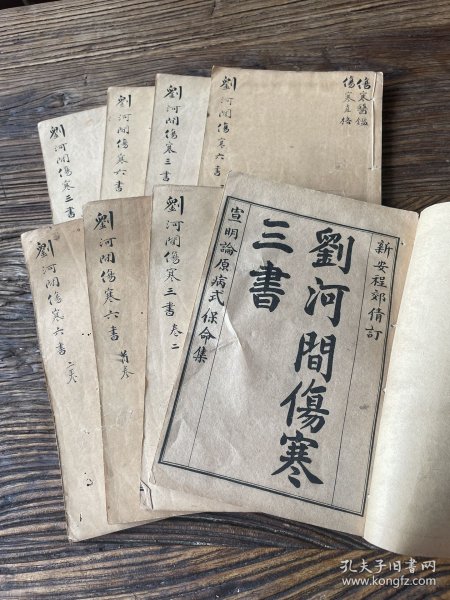 劉河間傷寒三書
劉河間傷寒六書
劉河間傷寒三書
劉河間傷寒六書
傷寒醫鑑
傷寒直格
劉河間傷寒六書 二卷
劉河間傷寒六書
劉河間傷寒三書 卷二
新安程郊倩訂
劉河間傷寒
三書
宣明論原病式保命集
孔夫子旧书网
www.kongfz.com